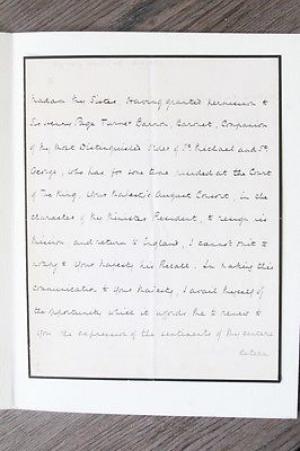 Madam My Sister. Having granted permission to
Sir Henry Page Turner Barron, Baronet, Companion
of My Most Distinguished Order of St. Michael and St.
George, who has for some time resided at the Court
of The King, Your Majesty's August Consort, in the
character of My Minister Resident, to resign his
Mission and return to England, I cannot omit to
notify to Your Majesty his Recall. In making this
communication to Your Majesty, I avail Myself of
the opportunity which it affords Me to renew to
You the expression of the sentiments of My sincere
esteem